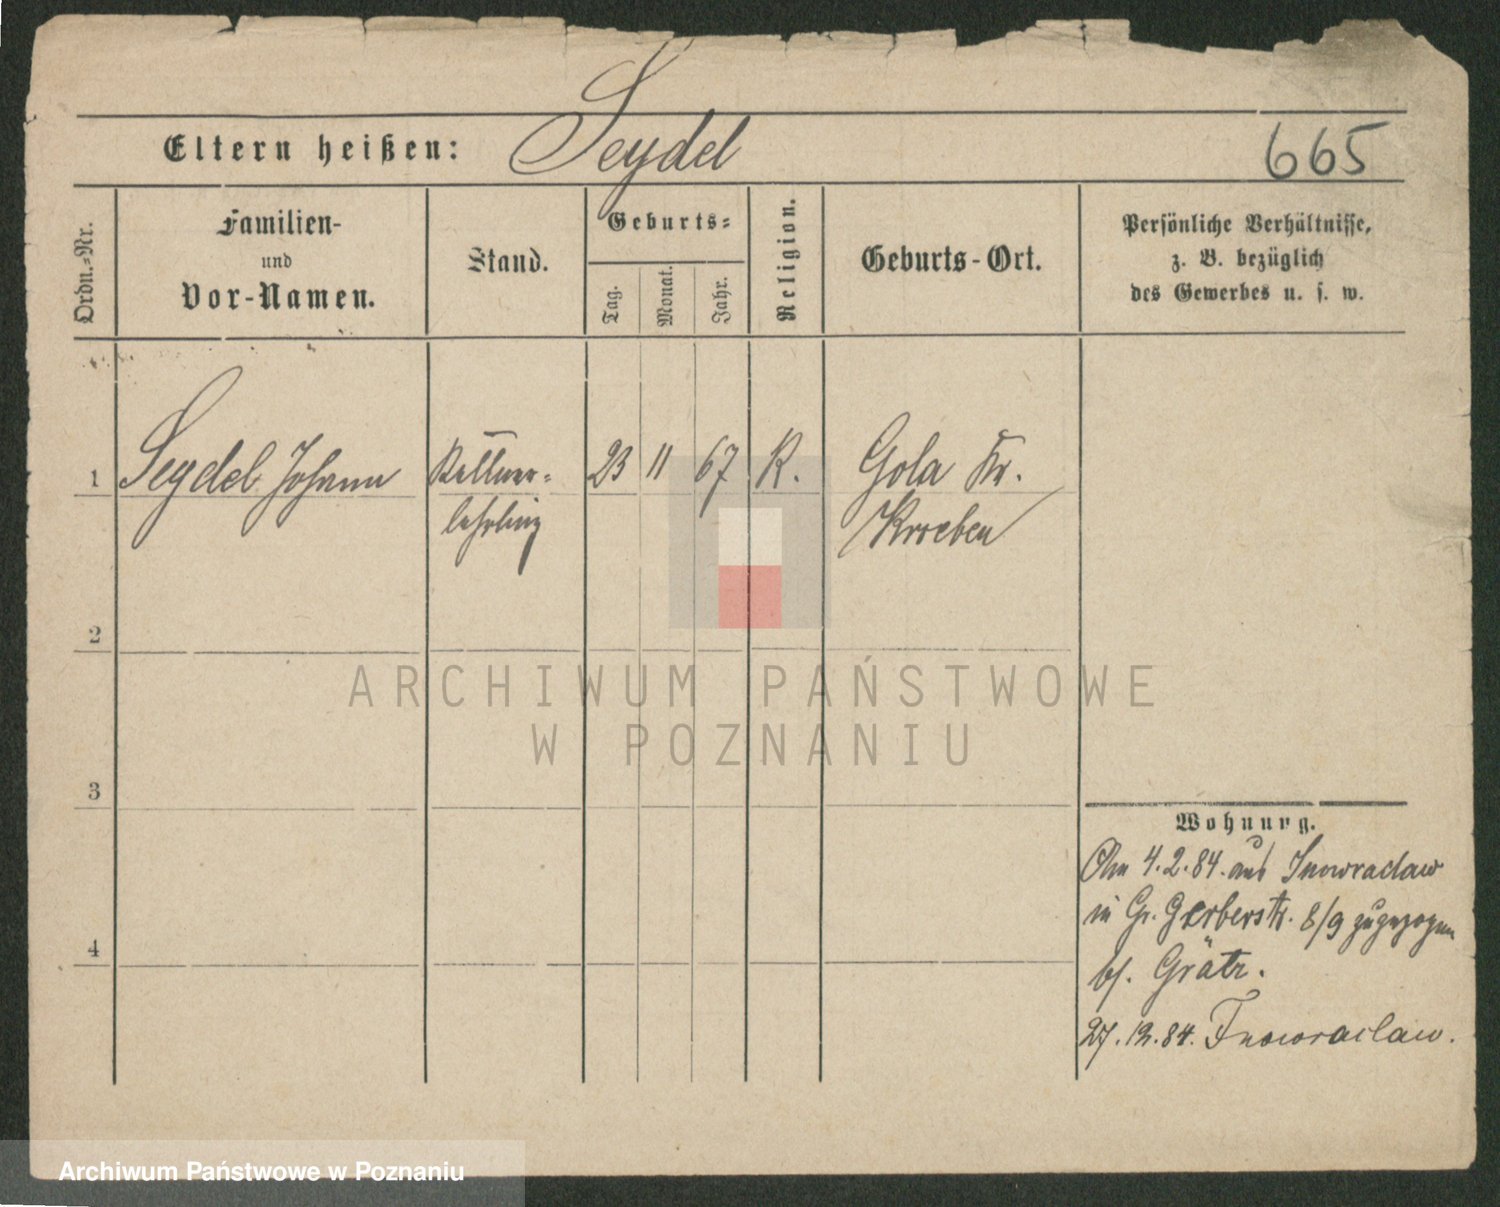 Eltern heißen: Seydel 665
Ordn.-Nr.
Familien-
und
Vor-Namen.
Stand.
Geburts-
Tag.
Monat.
Jahr.
Religion.
Geburts-Ort.
Persönliche Verhältnisse,
z. B. bezüglich
des Gewerbes u. s. w.
1 Seydel Johann Kellner- 23 11 67 K. Gola Kr.
lehrling Kroeben
2
3
4
Wohnung.
Am 4.2.84. aus Inowraclaw
in Gr. Gerberstr. 8/9 zugezogen
bf. Grätz.
27.12.84. Inowraclaw.
ARCHIWUM PAŃSTWOWE
W POZNANIU
Archiwum Państwowe w Poznaniu